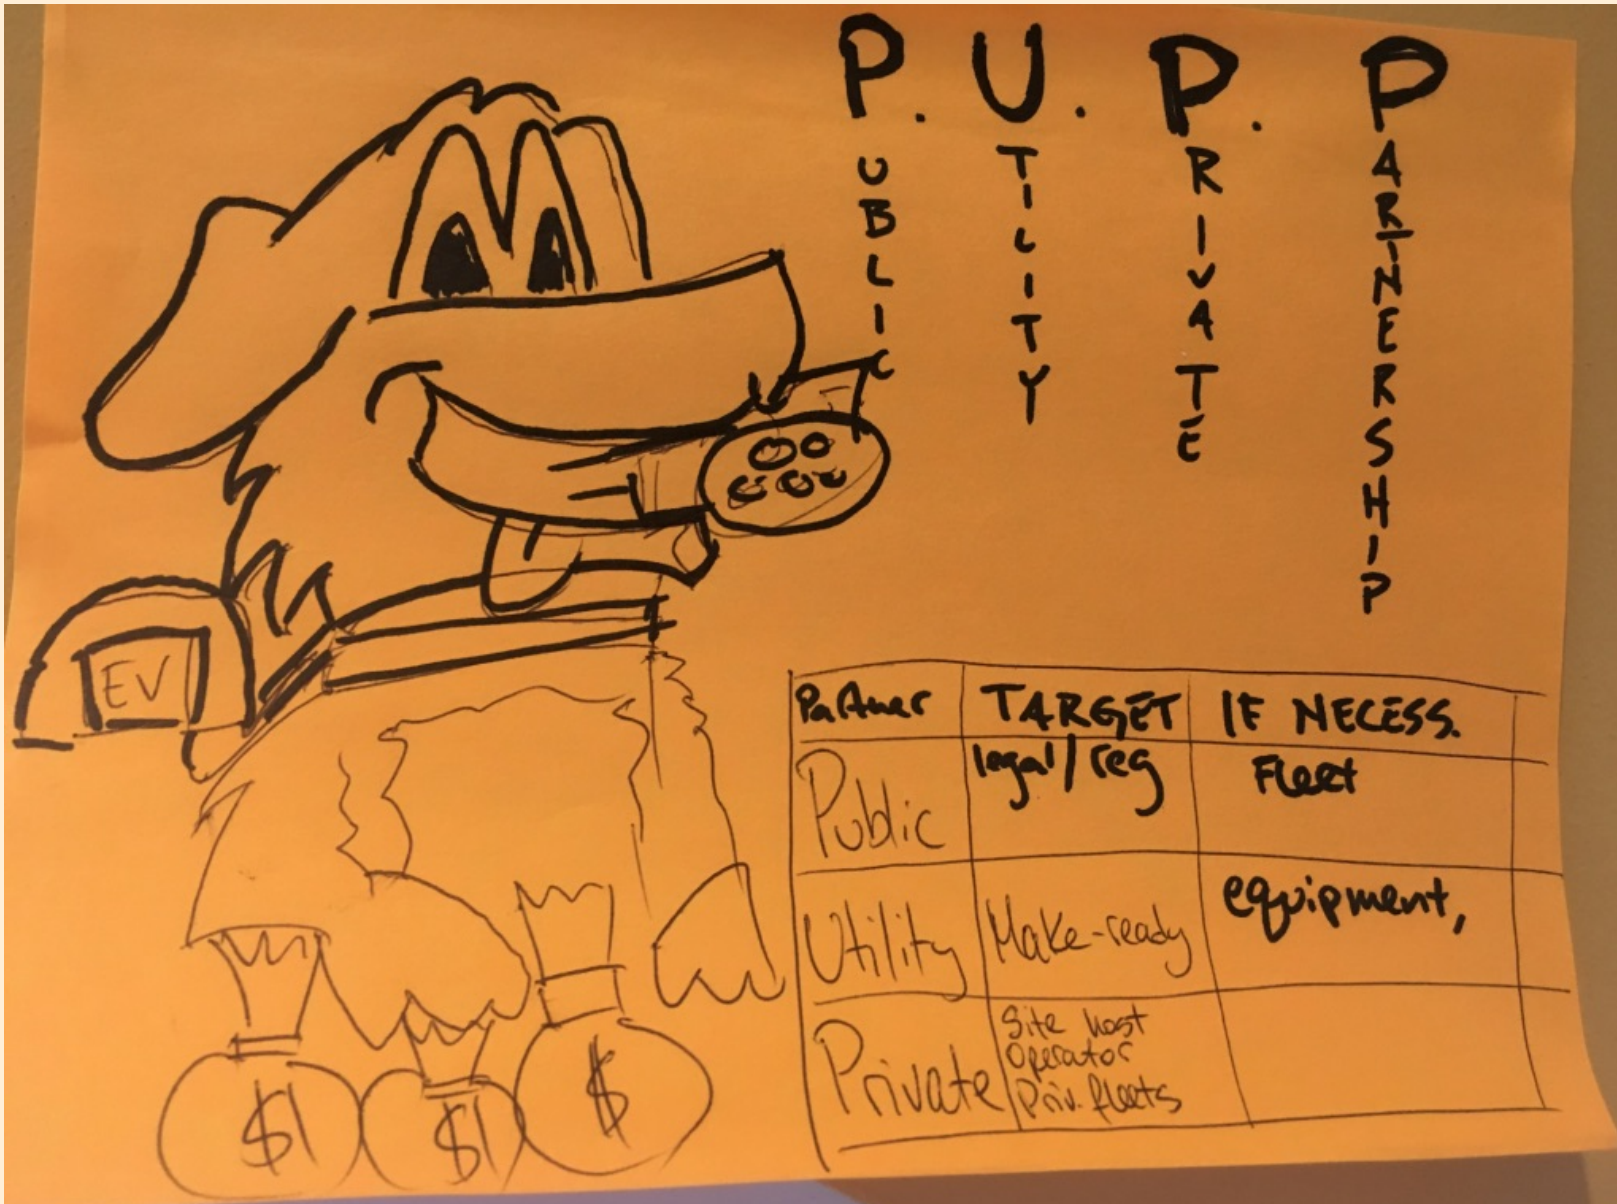 P. U. P. P
UBLIC
TILITY
RIVATE
ARTNERSHIP
EV
Partner TARGET IF NECESS.
Public legal/reg Fleet
Utility Make-ready equipment,
Private Site host
Operator
Priv. fleets
$ $ $